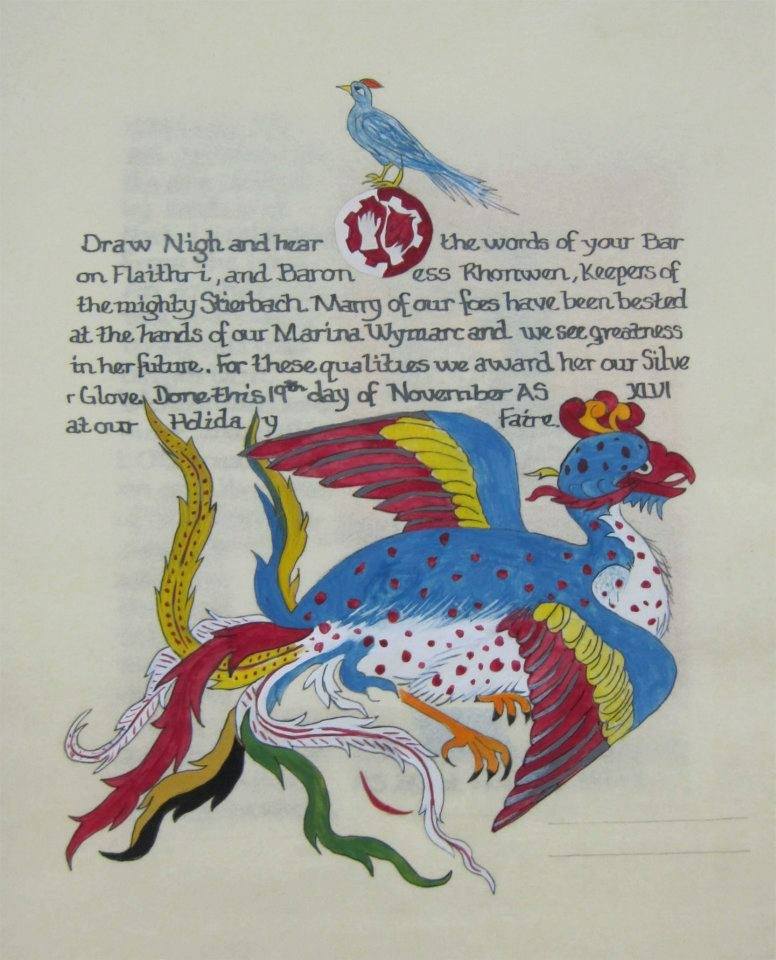 Draw Nigh and hear the words of your Bar
on Flaithri, and Baron ess Rhonwen, Keepers of
the mighty Stierbach. Many of our foes have been bested
at the hands of our Marina Wymarc and we see greatness
in her future. For these qualities we award her our Silve
r Glove. Done this 19th day of November AS XLVI
at our Holida y Faire.